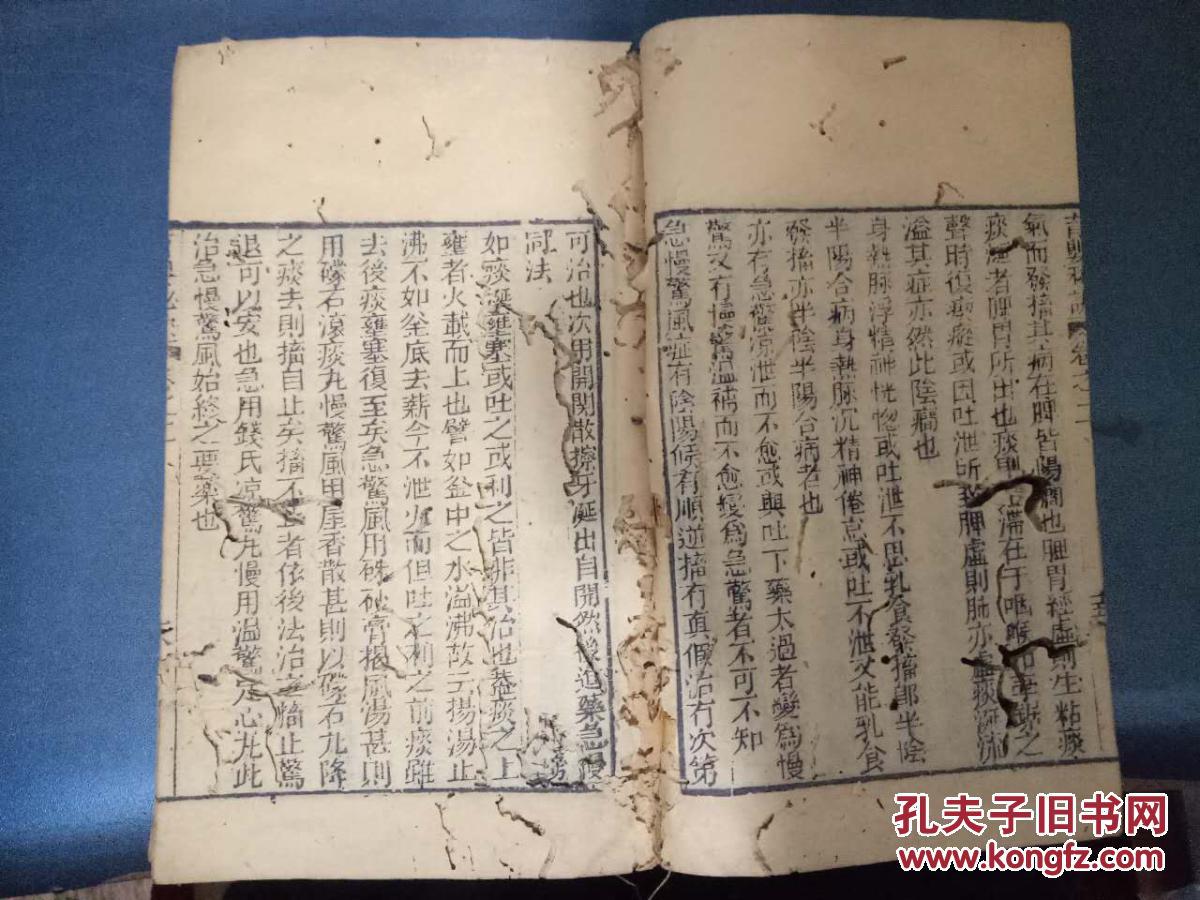 氣而發搐其病在脾皆陽癇也脾胃經虛則生粘痰
痰涎者脾胃所出也痰 滯在于咽喉 之
聲時復 癡或因吐泄所致脾虛則肺亦虛痰涎沛
溢其症亦然此陰癇也
身熱脉浮精神恍惚或吐泄不思乳食發搐卽半陰
半陽合病身熱脉沉精神倦怠或吐不泄又能乳食
發搐亦半陰半陽合病者也
亦有急驚凉泄而不愈或與吐下藥太過者變爲慢
驚又有慢驚溫補而不愈變爲急驚者不可不知
急慢驚風症有陰陽候有順逆搐有眞假治有次第
可治也次用開關散擦牙涎出自開然後進藥急慢
同法
如痰涎壅塞或吐之或利之皆非其治也蓋痰之上
壅者火載而上也譬如釜中之水溢沸故云揚湯止
沸不如釜底去薪今不泄火而但吐之利之前痰雖
去後痰壅塞復至矣急驚風用硃砂膏揭風湯甚則
用礞石滾痰丸慢驚風用星香散甚則以礞石丸降
之痰去則搐自止矣搐不止者依後法治之搐止驚
退可以安也急用錢氏凉驚丸慢用溫驚定心丸此
治急慢驚風始終之要藥也
孔夫子旧书网
www.kongfz.com